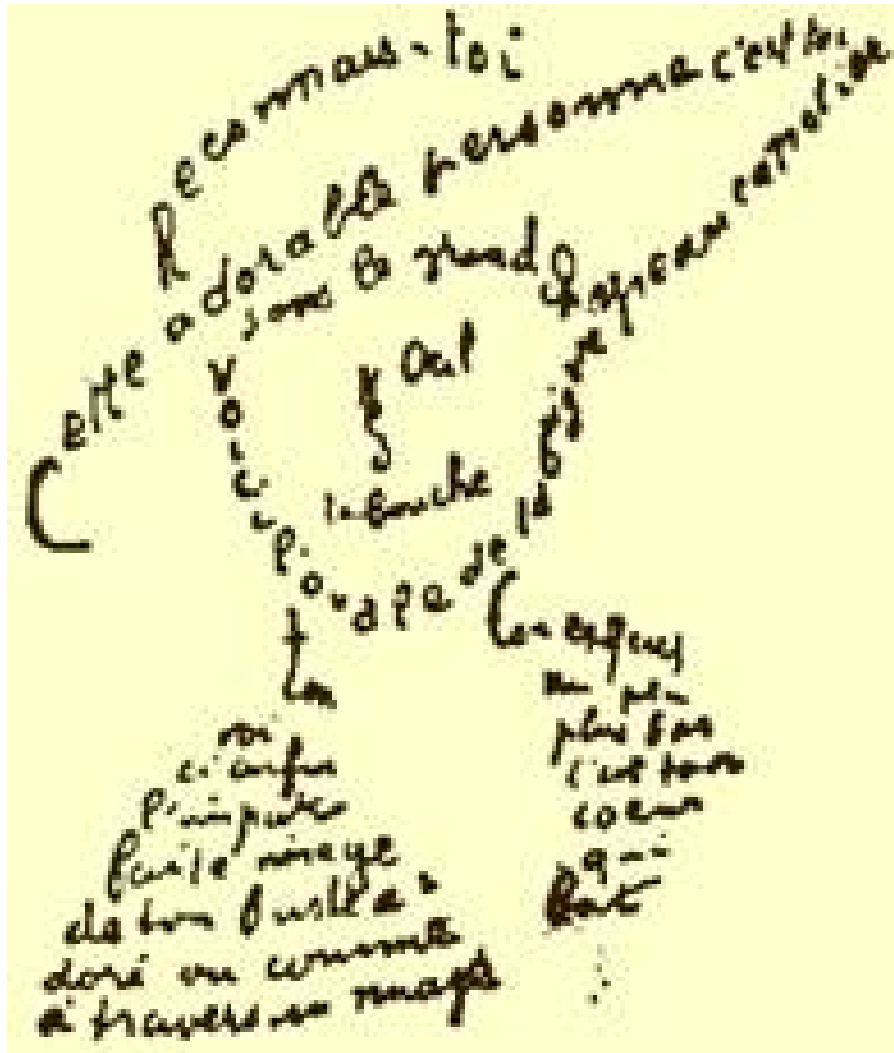 Reconnais-toi
Cette adorable personne c'est toi
sous le grand chapeau canotier
Oeil
Nez
la bouche
Voici l'ovale de ta figure
ton cou
exquis
Voici enfin
l'imparfaite image
de ton buste a
doré vu comme
à travers un nuage
un peu
plus bas
c'est ton
coeur
qui
bat